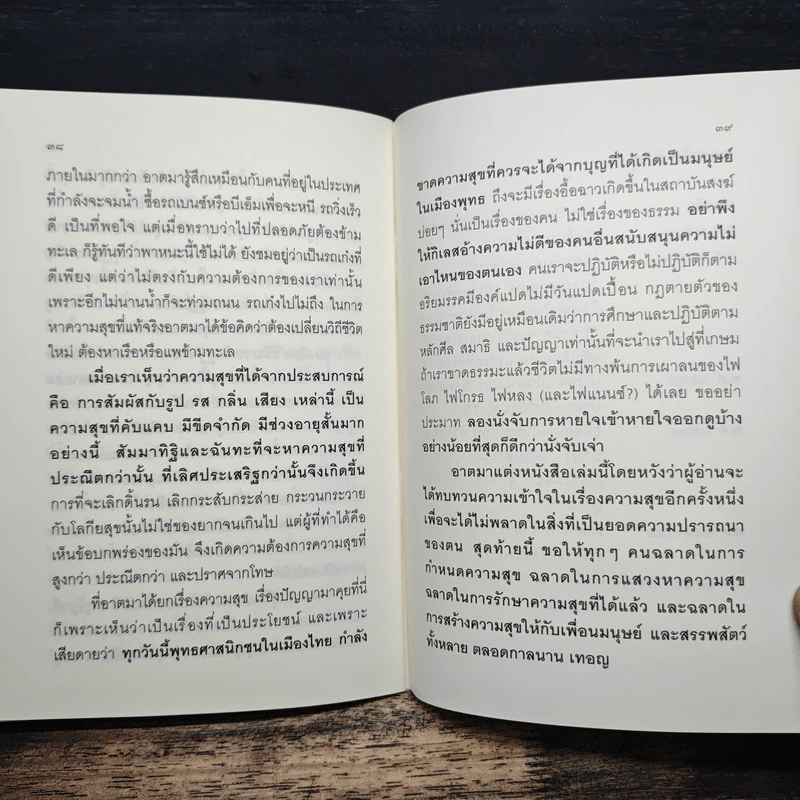 ๓๘
ภายในมากกว่า อาตมารู้สึกเหมือนกับคนที่อยู่ในประเทศ
ที่กำลังจะจมน้ำ ซื้อรถเบนซ์หรือบีเอ็มเพื่อจะหนี รถวิ่งเร็ว
ดี เป็นที่พอใจ แต่เมื่อทราบว่าไปที่ปลอดภัยต้องข้าม
ทะเล ก็รู้ทันทีว่าพาหนะนี้ใช้ไม่ได้ ยังชมอยู่ว่าเป็นรถเก๋งที่
ดีเพียง แต่ว่าไม่ตรงกับความต้องการของเราเท่านั้น
เพราะอีกไม่นานน้ำก็จะท่วมถนน รถเก๋งไปไม่ถึง ในการ
หาความสุขที่แท้จริงอาตมาได้ข้อคิดว่าต้องเปลี่ยนวิถีชีวิต
ใหม่ ต้องหาเรือหรือแพข้ามทะเล
เมื่อเราเห็นว่าความสุขที่ได้จากประสบการณ์
คือ การสัมผัสกับรูป รส กลิ่น เสียง เหล่านี้ เป็น
ความสุขที่คับแคบ มีขีดจำกัด มีช่วงอายุสั้นมาก
อย่างนี้ สัมมาทิฐิและฉันทะที่จะหาความสุขที่
ประณีตกว่านั้น ที่เลิศประเสริฐกว่านั้นจึงเกิดขึ้น
การที่จะเลิกดิ้นรน เลิกกระสับกระส่าย กระวนกระวาย
กับโลกียสุขนั้นไม่ใช่ของยากจนเกินไป แต่ผู้ที่ทำได้คือ
เห็นข้อบกพร่องของมัน จึงเกิดความต้องการความสุขที่
สูงกว่า ประณีตกว่า และปราศจากโทษ
ที่อาตมาได้ยกเรื่องความสุข เรื่องปัญญามาคุยที่นี่
ก็เพราะเห็นว่าเป็นเรื่องที่เป็นประโยชน์ และเพราะ
เสียดายว่า ทุกวันนี้พุทธศาสนิกชนในเมืองไทย กำลัง
๓๙
ขาดความสุขที่ควรจะได้จากบุญที่ได้เกิดเป็นมนุษย์
ในเมืองพุทธ ถึงจะมีเรื่องอื้อฉาวเกิดขึ้นในสถาบันสงฆ์
บ่อยๆ นั่นเป็นเรื่องของคน ไม่ใช่เรื่องของธรรม อย่าพึง
ให้กิเลสอ้างความไม่ดีของคนอื่นสนับสนุนความไม่
เอาไหนของตนเอง คนเราจะปฏิบัติหรือไม่ปฏิบัติก็ตาม
อริยมรรคมีองค์แปดไม่มีวันแปดเปื้อน กฎตายตัวของ
ธรรมชาติยังมีอยู่เหมือนเดิมว่าการศึกษาและปฏิบัติตาม
หลักศีล สมาธิ และปัญญาเท่านั้นที่จะนำเราไปสู่ที่เกษม
ถ้าเราขาดธรรมะแล้วชีวิตไม่มีทางพ้นการเผาลนของไฟ
โลภ ไฟโกรธ ไฟหลง (และไฟแนนซ์?) ได้เลย ขออย่า
ประมาท ลองนั่งจับการหายใจเข้าหายใจออกดูบ้าง
อย่างน้อยที่สุดก็ดีกว่านั่งจับเจ่า
อาตมาแต่งหนังสือเล่มนี้โดยหวังว่าผู้อ่านจะ
ได้ทบทวนความเข้าใจในเรื่องความสุขอีกครั้งหนึ่ง
เพื่อจะได้ไม่พลาดในสิ่งที่เป็นยอดความปรารถนา
ของตน สุดท้ายนี้ ขอให้ทุกๆ คนฉลาดในการ
กำหนดความสุข ฉลาดในการแสวงหาความสุข
ฉลาดในการรักษาความสุขที่ได้แล้ว และฉลาดใน
การสร้างความสุขให้กับเพื่อนมนุษย์ และสรรพสัตว์
ทั้งหลาย ตลอดกาลนาน เทอญ